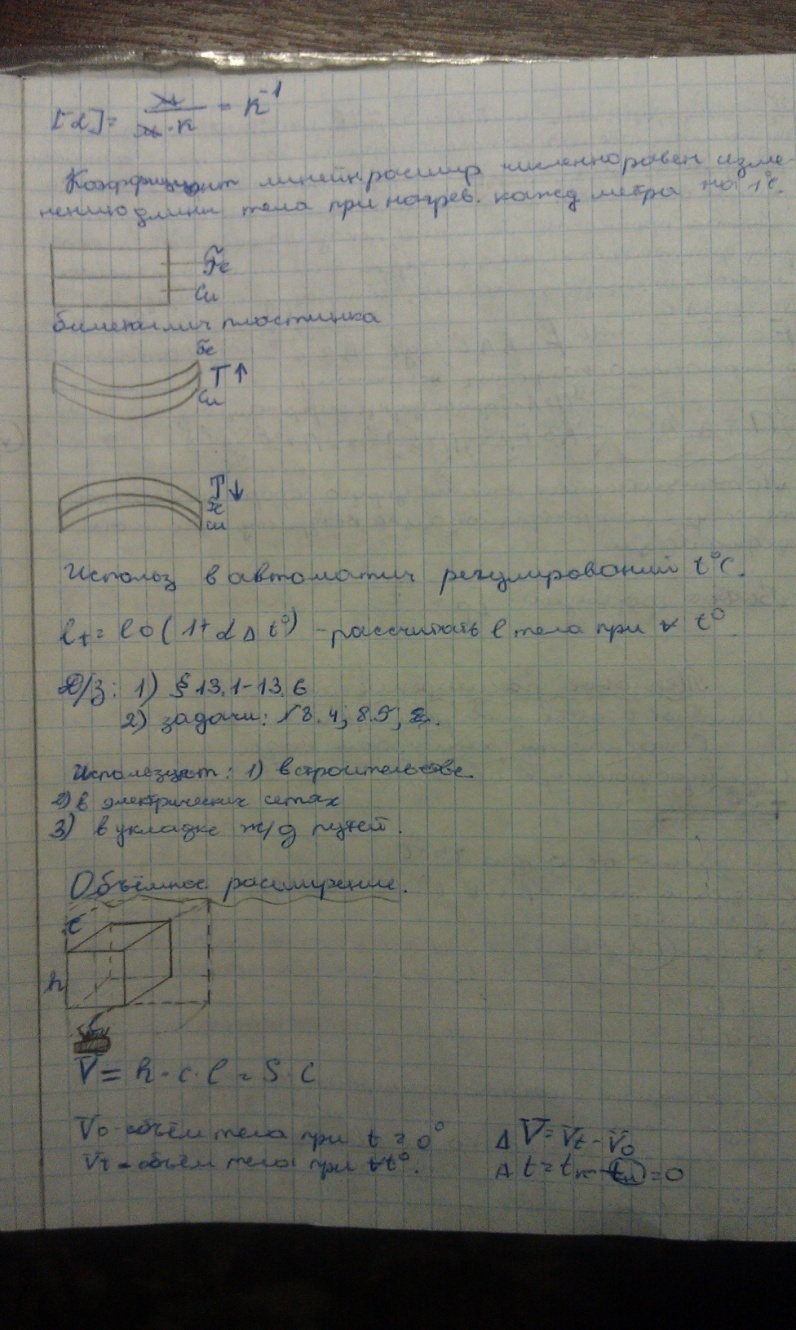 [α]= м/м·К = К⁻¹
Коэффициент линейн расшир численно равен изме-
нению длины тела при нагрев. кажд метра на 1°С.
Fe
Cu
биметаллич пластинка
Fe
T↑
Cu
T↓
Fe
Cu
Использ в автоматич регулирований t°С.
lt = l0(1+αΔt°) - рассчитать l тела при ∀ t°.
Д/З: 1) § 13.1-13.6
2) задачи: 8.4; 8.5;
Используют: 1) в строительстве.
2) в электрических сетях
3) в укладке ж/д путей.
Объёмное расширение.
c
h
l
V = h·c·l = S·c
V0 - объём тела при t = 0° ΔV = Vt - V0
Vt - объём тела при ∀t°. Δt = tк - tн = 0